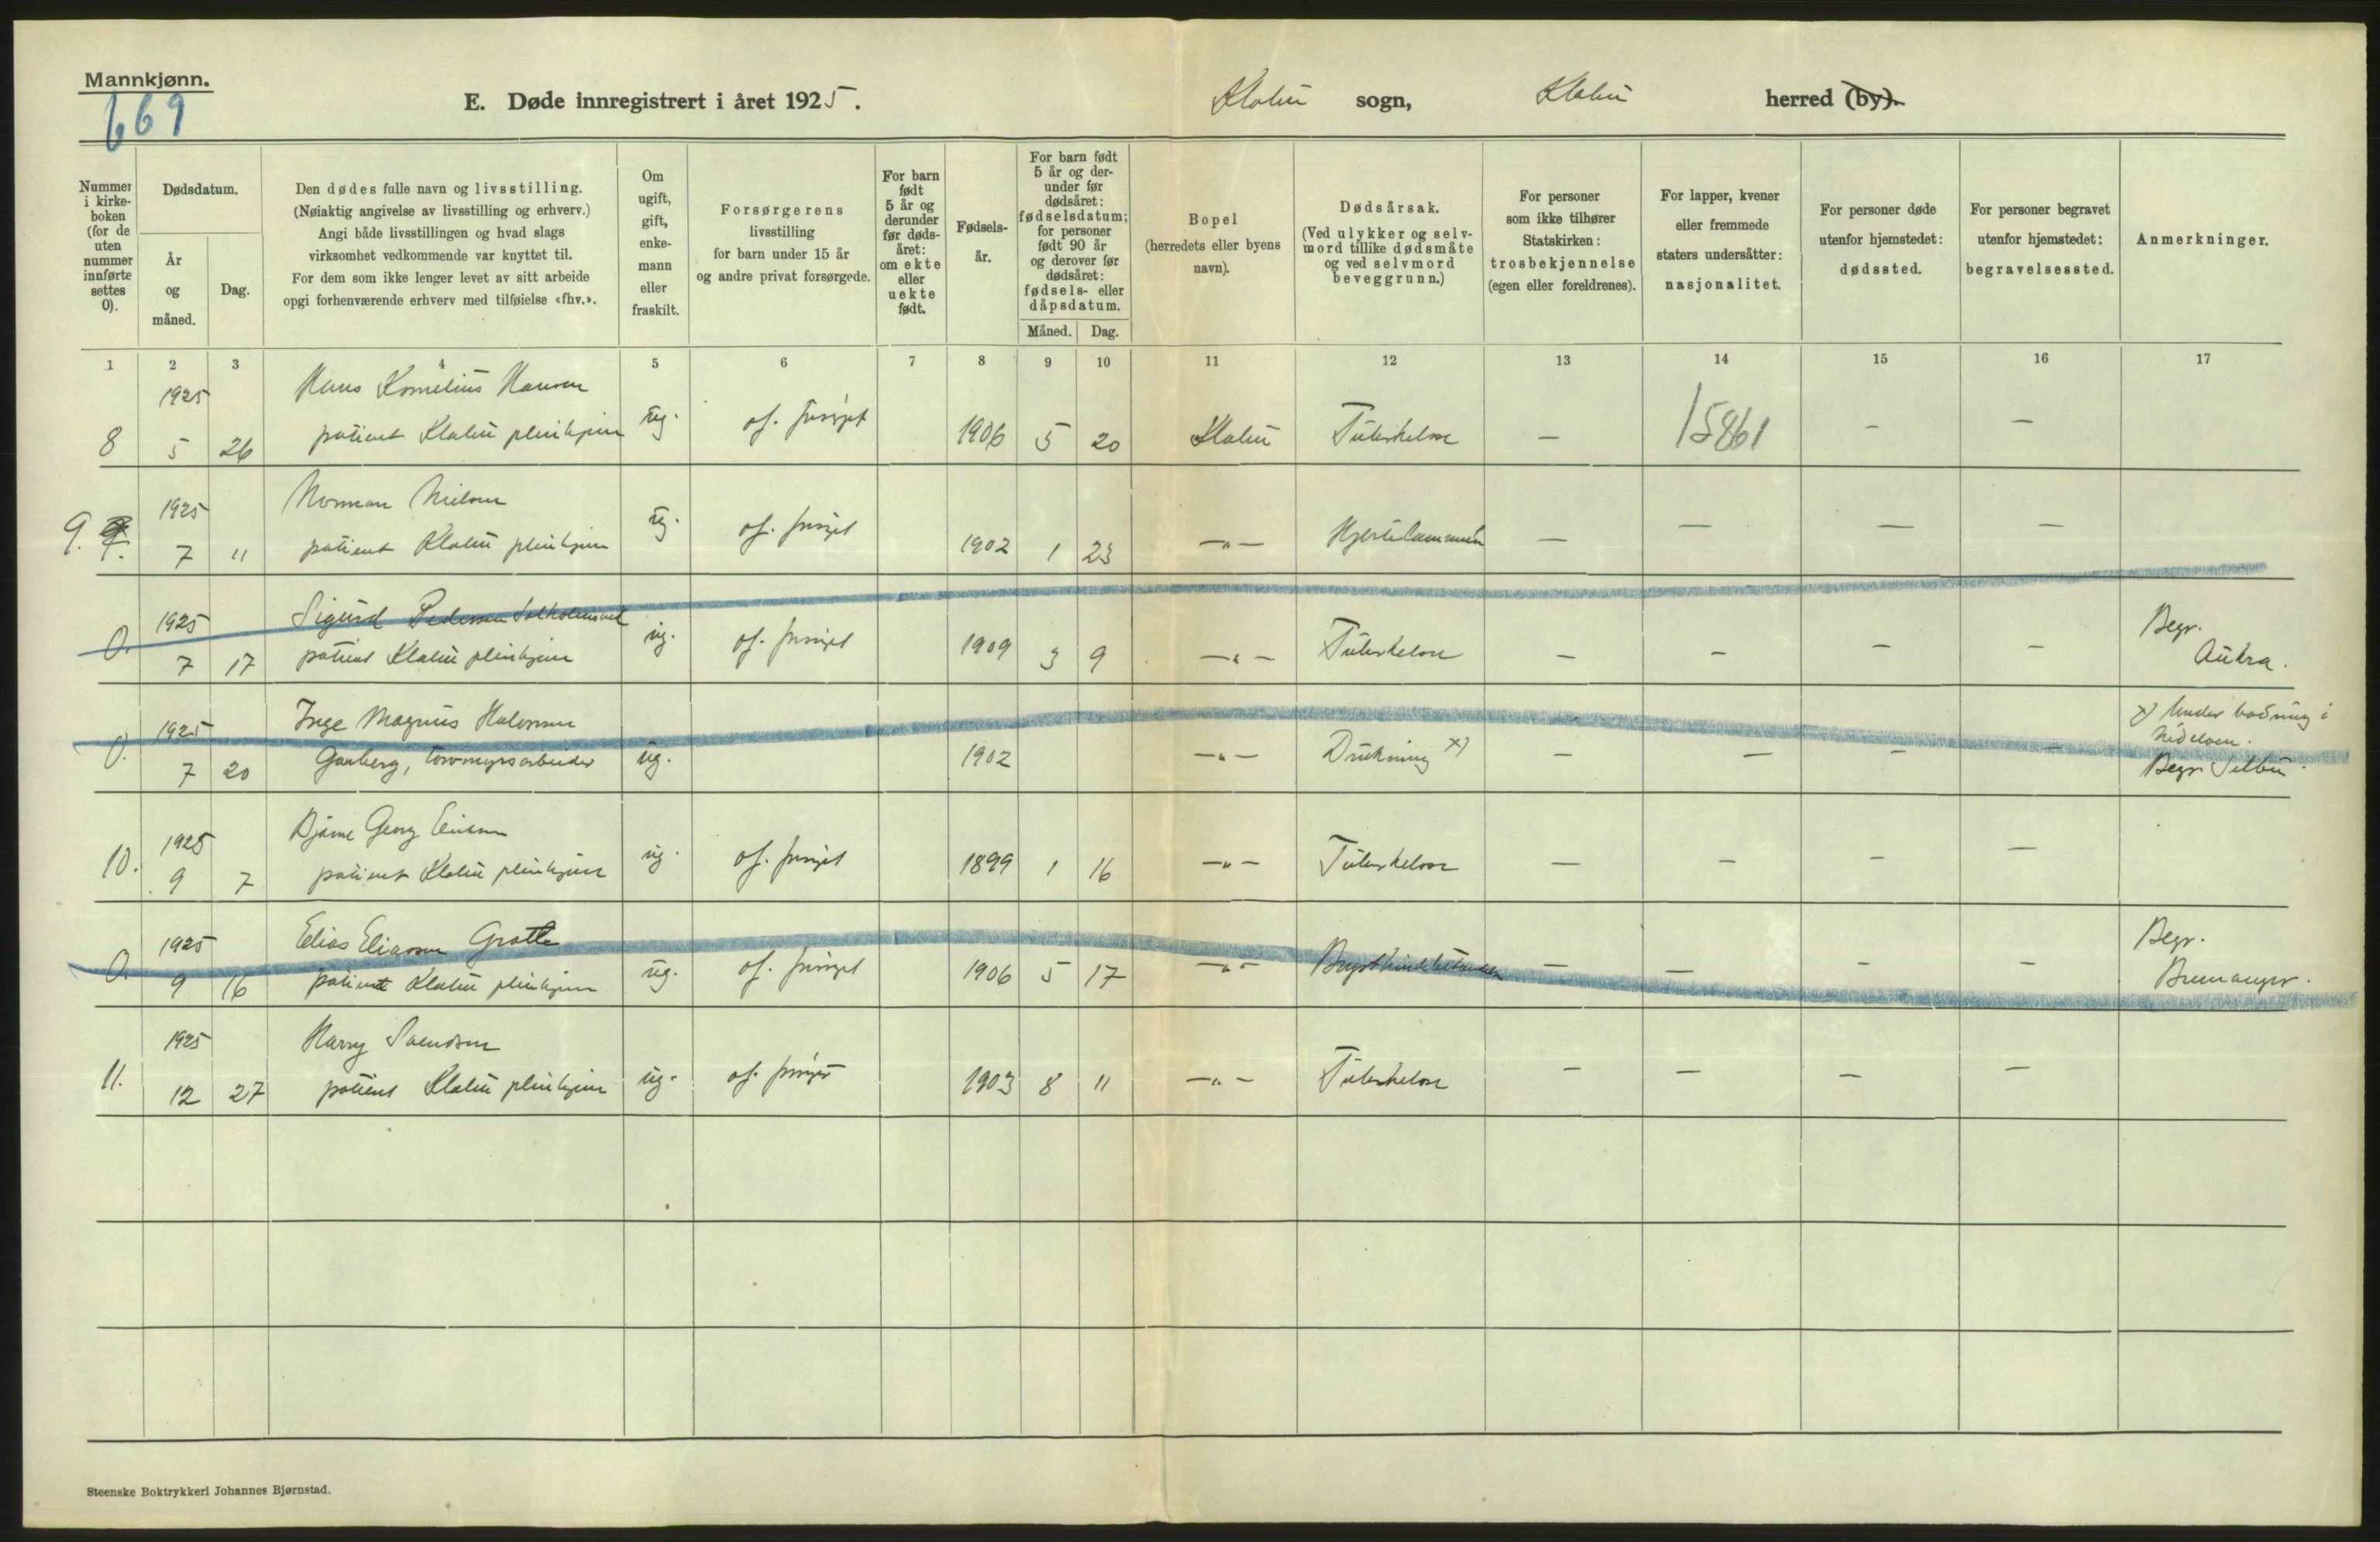 Mannkjønn.
669
E. Døde innregistrert i året 1925.
Klæbu sogn, Klæbu herred (by).
Nummer i kirke-boken (for de uten nummer innførte settes 0).
Dødsdatum.
År og måned.
Dag.
Den dødes fulle navn og livsstilling.
(Nøiaktig angivelse av livsstilling og erhverv.)
Angi både livsstillingen og hvad slags
virksomhet vedkommende var knyttet til.
For dem som ikke lenger levet av sitt arbeide
opgi forhenværende erhverv med tilføielse «fhv.».
Om ugift, gift, enke-mann eller fraskilt.
Forsørgerens
livsstilling
for barn under 15 år
og andre privat forsørgede.
For barn født 5 år og derunder før døds-året: om ekte eller uekte født.
Fødsels-år.
For barn født 5 år og der-under før dødsåret: fødselsdatum; for personer født 90 år og derover før dødsåret: fødsels- eller dåpsdatum.
Måned. Dag.
Bopel
(herredets eller byens
navn).
Dødsårsak.
(Ved ulykker og selv-
mord tillike dødsmåte
og ved selvmord
beveggrunn.)
For personer
som ikke tilhører
Statskirken:
trosbekjennelse
(egen eller foreldrenes).
For lapper, kvener
eller fremmede
staters undersåtter:
nasjonalitet.
For personer døde
utenfor hjemstedet:
dødssted.
For personer begravet
utenfor hjemstedet:
begravelsessted.
Anmerkninger.
1 2 3 4 5 6 7 8 9 10 11 12 13 14 15 16 17
1925 Hans Kornelius Hansen
8 5 26 patient Klæbu pleiehjem ug. of. forsørget 1906 5 20 Klæbu Tuberkelose — 15861 — —
1925 Norman Nielsen
9. 7 11 patient Klæbu pleiehjem ug. of. forsørget 1902 1 23 —"— — — — —
1925 Sigurd Pedersen Begr.
0. 7 17 patient Klæbu pleiehjem ug. of. forsørget 1909 3 9 —"— Tuberkelose — — — — Aukra.
1925 Inge Magnus Halvorsen x) Under badning i
Nidelven.
0. 7 20 Garberg, torvmyrsarbeider ug. 1902 —"— Drukning x) — — — — Begr. Selbu.
1925 Bjarne Georg Eriksen
10. 9 7 patient Klæbu pleiehjem ug. of. forsørget 1899 1 16 —"— Tuberkelose — — — —
1925 Elias Eliassen Grotle Begr.
0. 9 16 patient Klæbu pleiehjem ug. of. forsørget 1906 5 17 —"— Brysthindebetændelse — — — — Bremanger.
1925 Harry Svendsen
11. 12 27 patient Klæbu pleiehjem ug. of. forsørget 1903 8 11 —"— Tuberkelose — — — —
Steenske Boktrykkeri Johannes Bjørnstad.